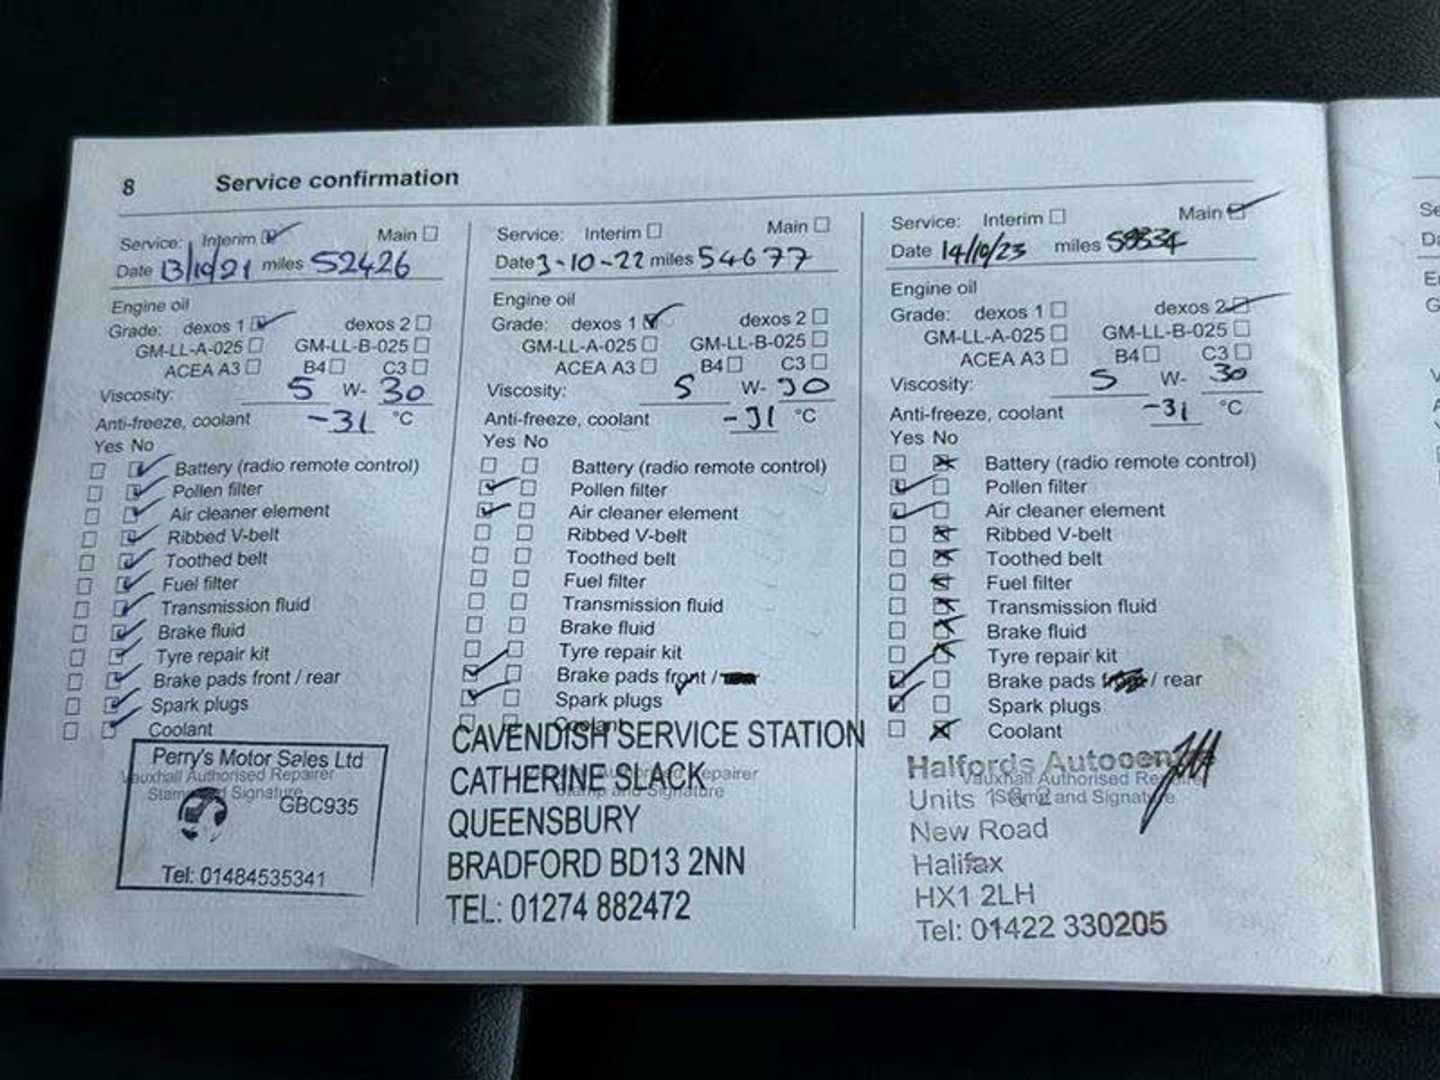 8 Service confirmation
Service: Interim Main
Date 13/10/21 miles 52426
Engine oil
Grade: dexos 1 dexos 2
GM-LL-A-025 GM-LL-B-025
ACEA A3 B4 C3
Viscosity: 5 W- 30
Anti-freeze, coolant -31 °C
Yes No
Battery (radio remote control)
Pollen filter
Air cleaner element
Ribbed V-belt
Toothed belt
Fuel filter
Transmission fluid
Brake fluid
Tyre repair kit
Brake pads front / rear
Spark plugs
Coolant
Perry's Motor Sales Ltd
Vauxhall Authorised Repairer
Stamp and Signature
GBC935
Tel: 01484535341
Service: Interim Main
Date 3-10-22 miles 54677
Engine oil
Grade: dexos 1 dexos 2
GM-LL-A-025 GM-LL-B-025
ACEA A3 B4 C3
Viscosity: 5 W- 30
Anti-freeze, coolant -31 °C
Yes No
Battery (radio remote control)
Pollen filter
Air cleaner element
Ribbed V-belt
Toothed belt
Fuel filter
Transmission fluid
Brake fluid
Tyre repair kit
Brake pads front /
Spark plugs
Coolant
CAVENDISH SERVICE STATION
CATHERINE SLACK
Repairer
Stamp and Signature
QUEENSBURY
BRADFORD BD13 2NN
TEL: 01274 882472
Service: Interim Main
Date 14/10/23 miles
Engine oil
Grade: dexos 1 dexos 2
GM-LL-A-025 GM-LL-B-025
ACEA A3 B4 C3
Viscosity: 5 W- 30
Anti-freeze, coolant -31 °C
Yes No
Battery (radio remote control)
Pollen filter
Air cleaner element
Ribbed V-belt
Toothed belt
Fuel filter
Transmission fluid
Brake fluid
Tyre repair kit
Brake pads / rear
Spark plugs
Coolant
Halfords
Vauxhall Authorised Repairer
Units 1 & 2
Stamp and Signature
New Road
Halifax
HX1 2LH
Tel: 01422 330205